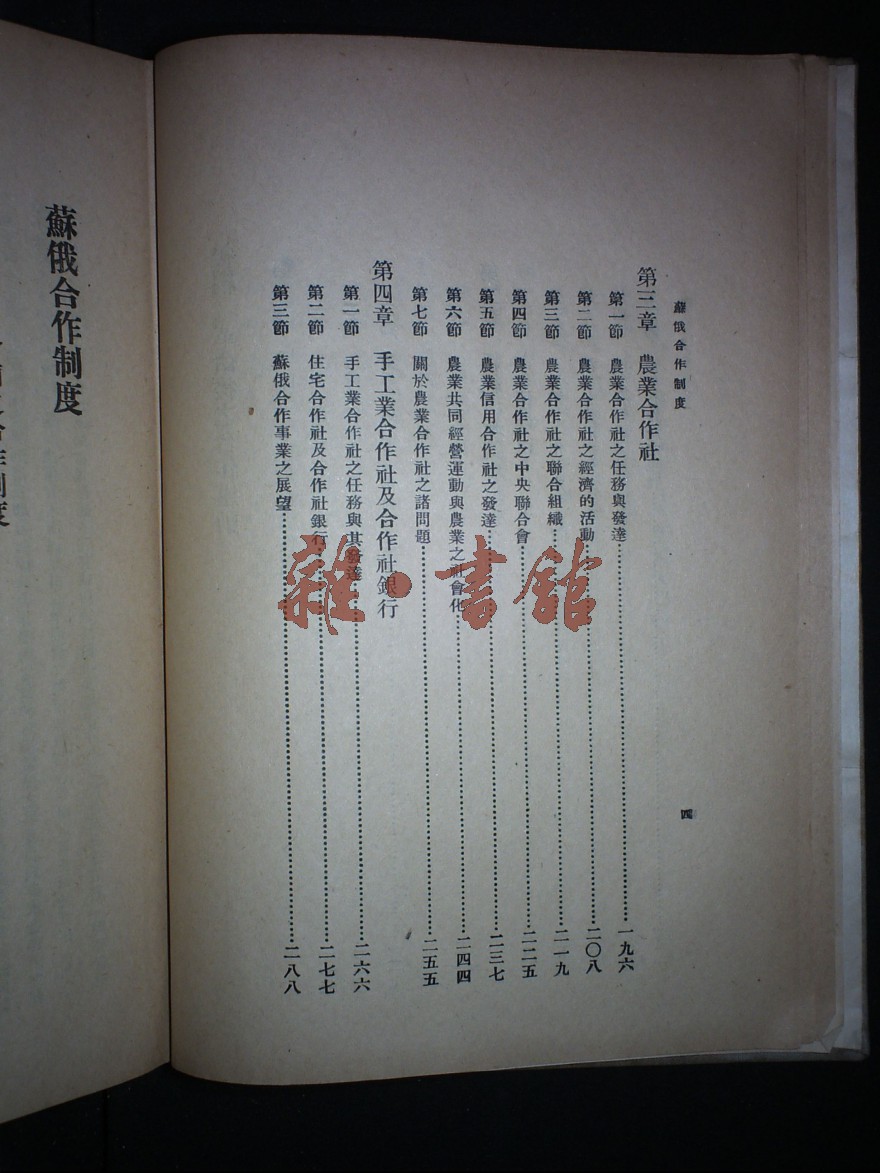 蘇俄合作制度
第三章 農業合作社
第一節 農業合作社之任務與發達……一九六
第二節 農業合作社之經濟的活動……二〇八
第三節 農業合作社之聯合組織……二一九
第四節 農業合作社之中央聯合會……二二五
第五節 農業信用合作社之發達……二三七
第六節 農業共同經營運動與農業之社會化……二四四
第七節 關於農業合作社之諸問題……二五五
第四章 手工業合作社及合作社銀行
第一節 手工業合作社之任務與其發達……二六六
第二節 住宅合作社及合作社銀行……二七七
第三節 蘇俄合作事業之展望……二八八
四
雜·書館
蘇俄合作制度
合作制度